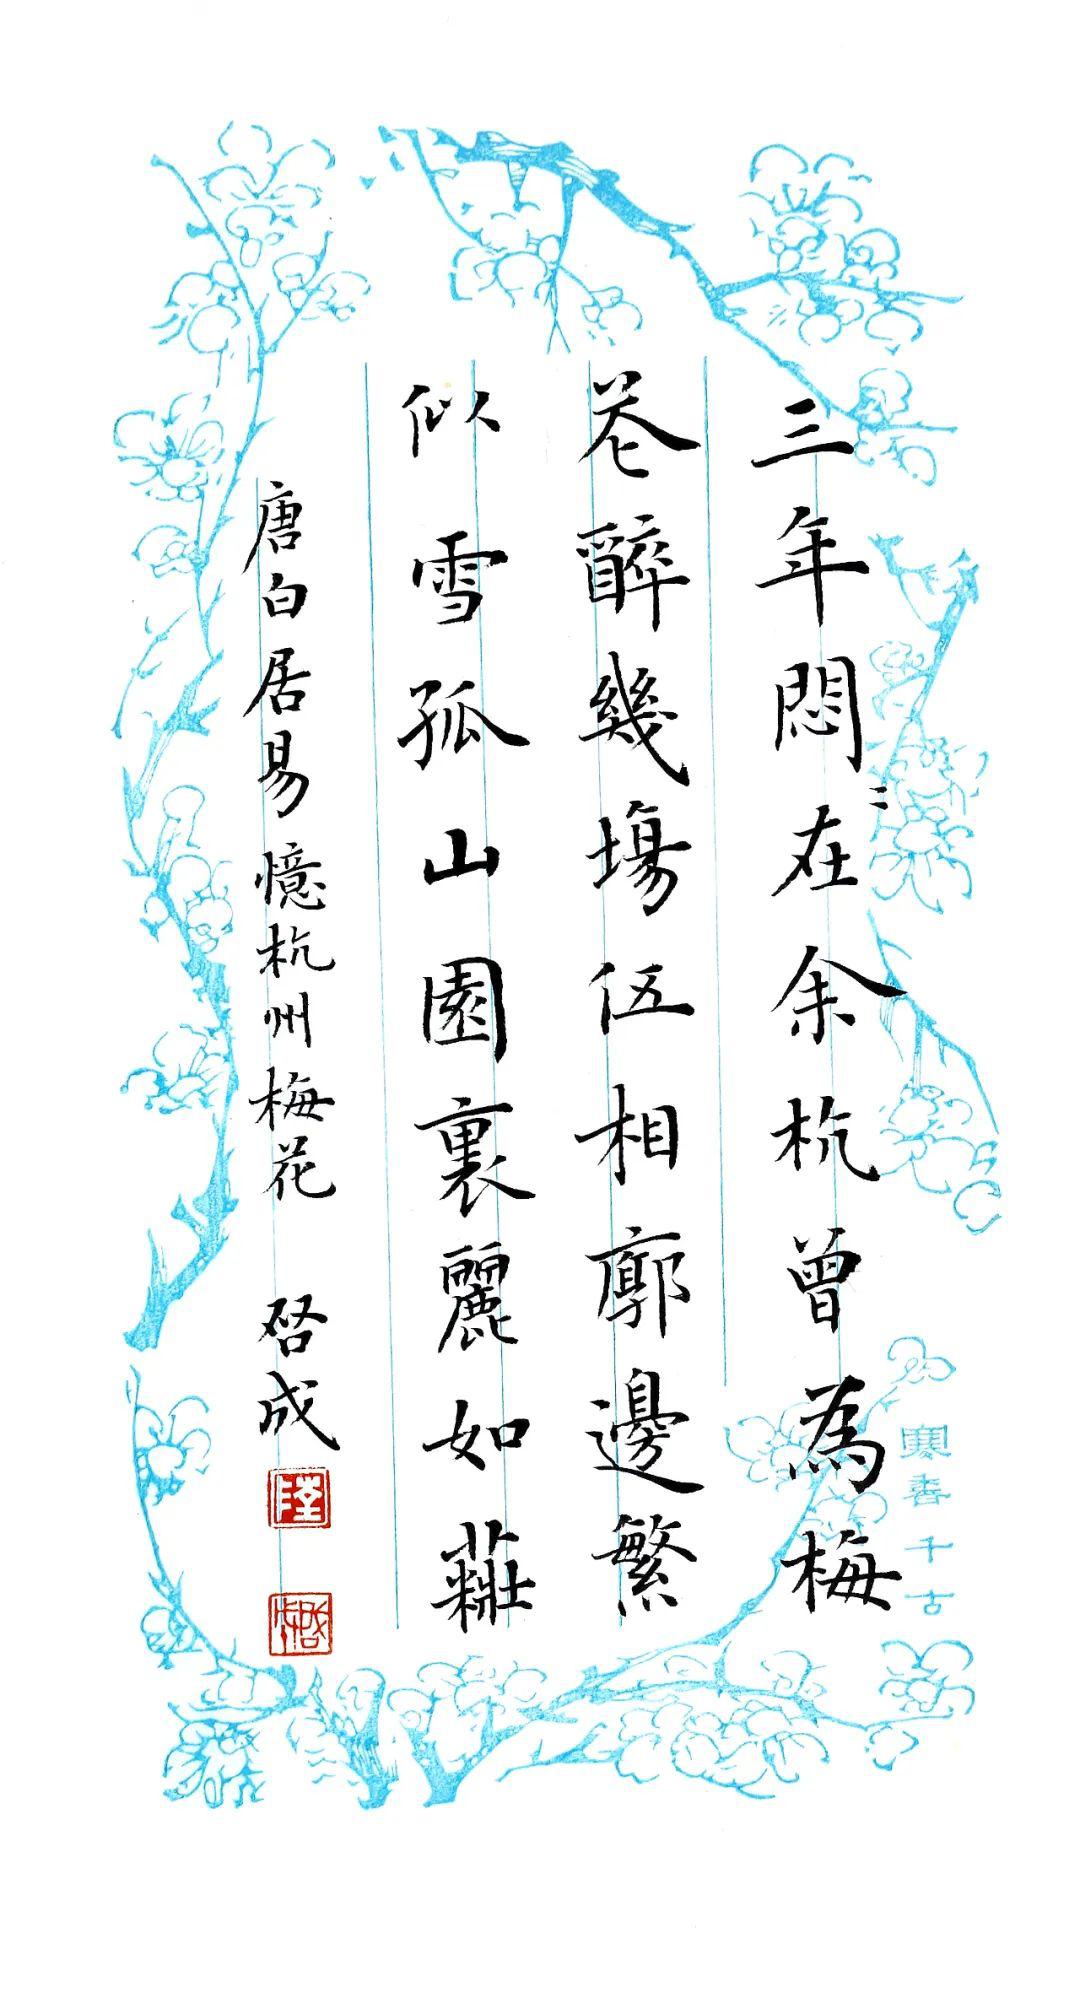 三年悶〻在余杭曾為梅
花醉幾塲伍相廓邊繁
似雪孤山園裏麗如粧
唐白居易憶杭州梅花 启成
陸
寒香千古